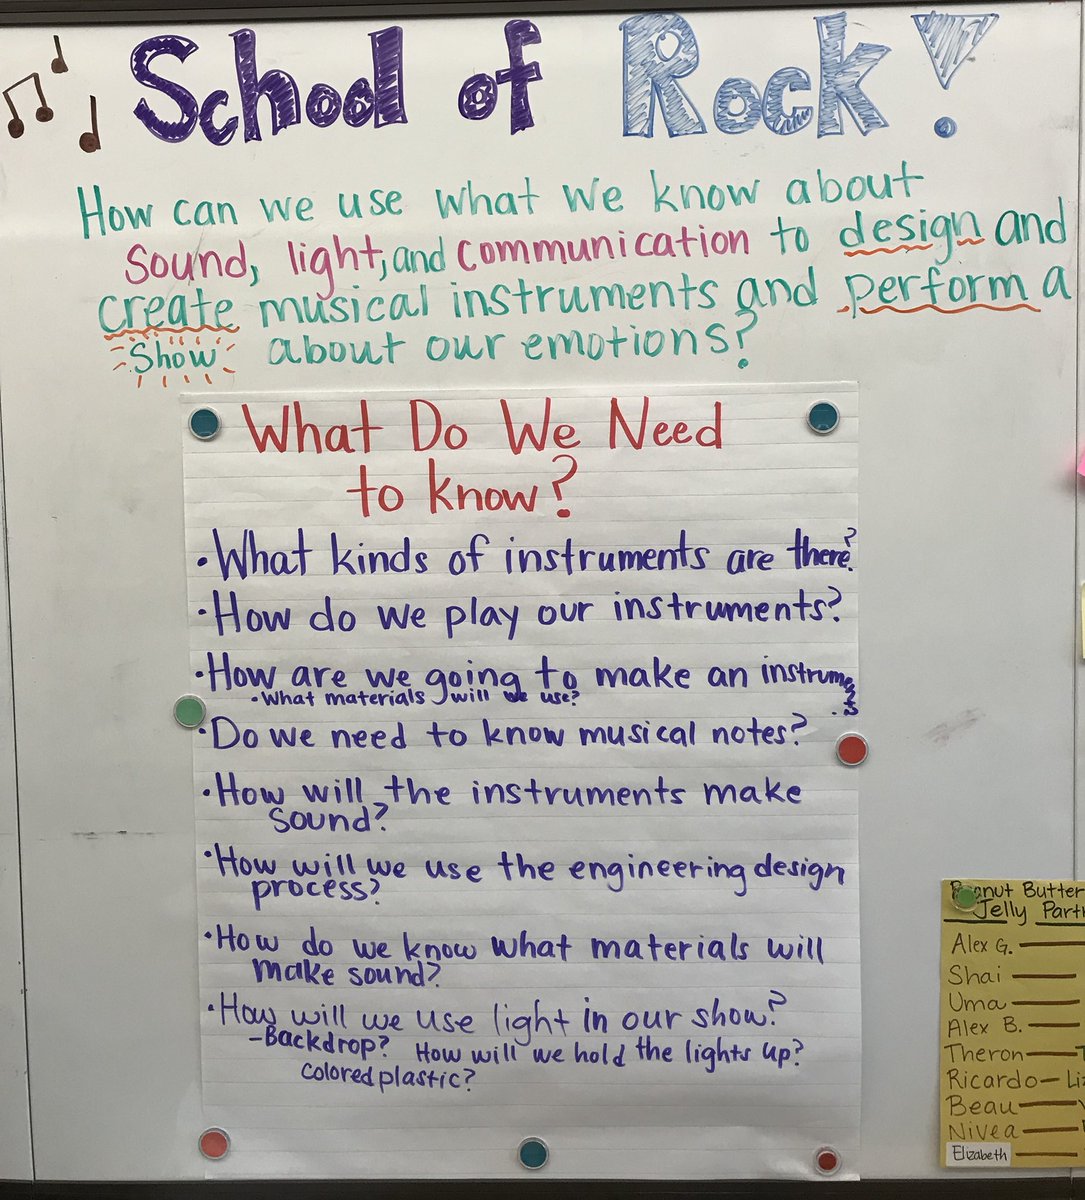 School of Rock!
How can we use what we know about
sound, light, and communication to design and
create musical instruments and perform a
show about our emotions?
What Do We Need
to know?
• What kinds of instruments are there?
• How do we play our instruments?
• How are we going to make an instruments?
• What materials will we use?
• Do we need to know musical notes?
• How will the instruments make
sound?
• How will we use the engineering design
process?
• How do we know what materials will
make sound?
• How will we use light in our show?
- Backdrop? How will we hold the lights up?
colored plastic?
Peanut Butter
Jelly
Alex G.
Shai
Uma
Alex B.
Theron
Ricardo - Liz
Beau
Nivea
Elizabeth